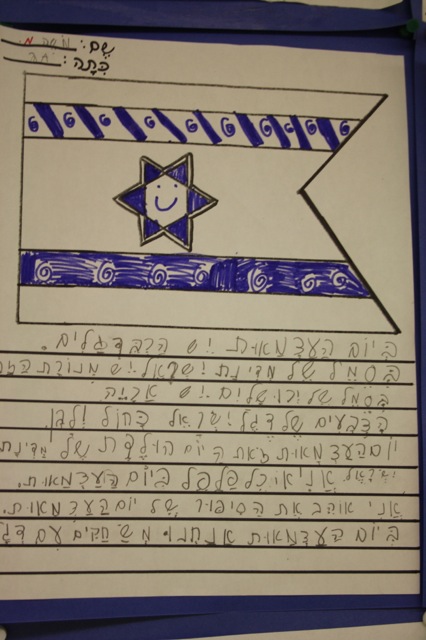 שֵׁם: מֹשֶׁה מ.
כִּתָּה:
בְּיוֹם הָעַצְמָאוּת יֵשׁ הַרְבֵּה דְּגָלִים.
בַּסֵּמֶל שֶׁל מְדִינַת יִשְׂרָאֵל יֵשׁ מְנוֹרַת
בַּסֵּמֶל שֶׁל יְרוּשָׁלַיִם יֵשׁ אַרְיֵה
בַּצְּבָעִים שֶׁל דֶּגֶל יִשְׂרָאֵל כָּחוֹל וְלָבָן.
יוֹם הָעַצְמָאוּת זֹאת הַיּוֹם הוּלֶּדֶת שֶׁל מְדִינַת
יִשְׂרָאֵל. אֲנִי אוֹכֵל פָלָפֶל בְּיוֹם הָעַצְמָאוּת.
אֲנִי אוֹהֵב אֶת הַסִּיפּוּר שֶׁל יוֹם הָעַצְמָאוּת.
בְּיוֹם הָעַצְמָאוּת אֲנַחְנוּ מְשַׂחֲקִים עִם